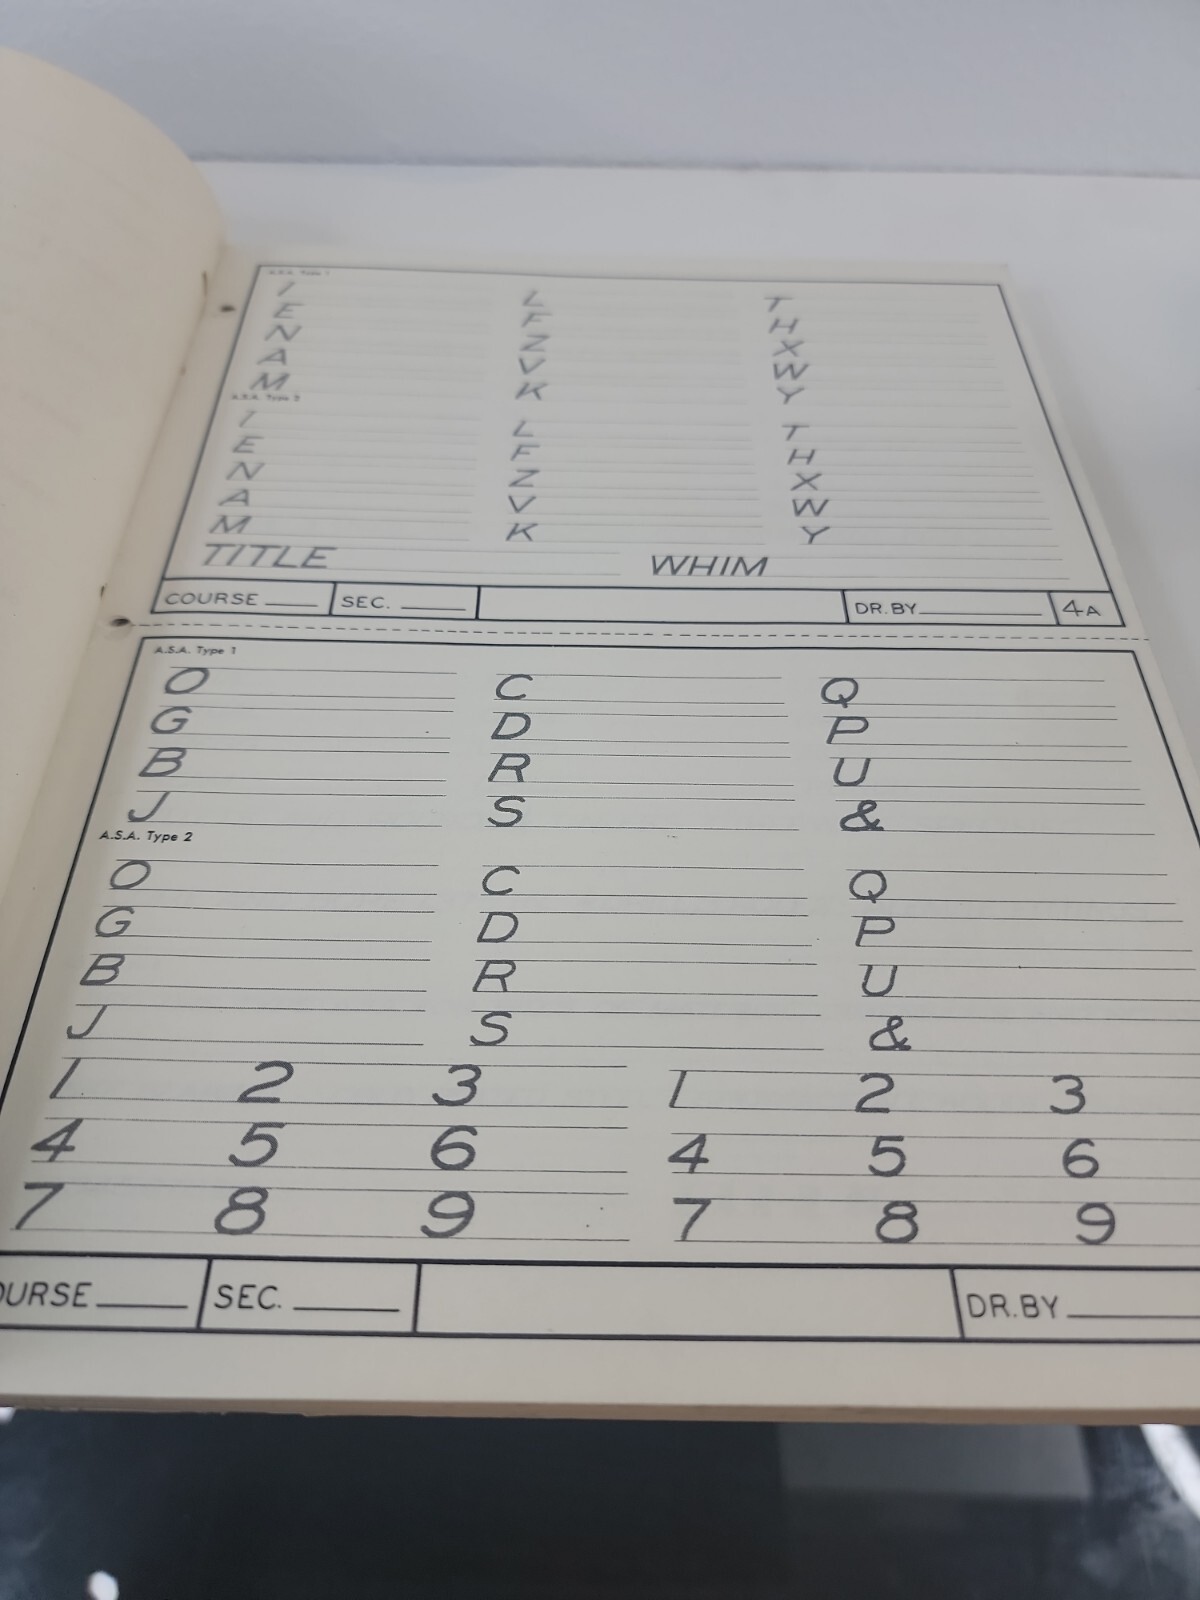 A.S.A. Type 1
I L T
E F H
N Z X
A V W
M K Y
A.S.A. Type 2
I L T
E F H
N Z X
A V W
M K Y
TITLE WHIM
COURSE SEC. DR. BY 4A
A.S.A. Type 1
O C Q
G D P
B R U
J S &
A.S.A. Type 2
O C Q
G D P
B R U
J S &
1 2 3 1 2 3
4 5 6 4 5 6
7 8 9 7 8 9
OURSE SEC. DR. BY